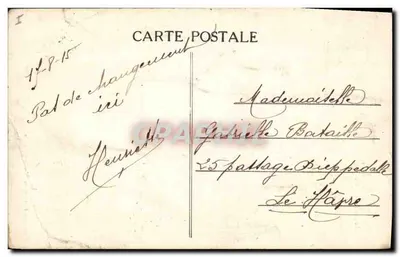 I
CARTE POSTALE
17-8-15
Pas de changement
ici
Henriette
Mademoiselle
Gabrielle Bataille
25 passage Dieppedalle
Le Hâvre